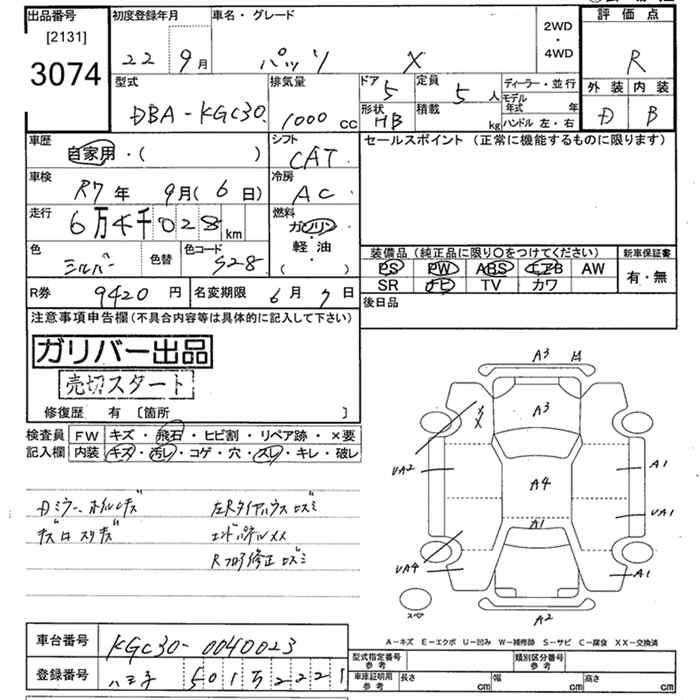 出品番号
[2131]
3074
初度登録年月
車名・グレード
22 9月 パッソ X
2WD
・
4WD
評価点
R
型式
DBA-KGC30
排気量
1000 cc
ドア 5
形状 HB
定員 5 人
積載 kg
ディーラー・並行
モデル年式 年
ハンドル 左・右
外装 内装
D B
車歴
自家用・( )
シフト
CAT
セールスポイント (正常に機能するものに限ります)
車検
R7年 9月(6日)
冷房
AC
走行
6万4千028 km
燃料
ガソリン
軽油
( ・ )
色
シルバー
色替
色コード
S28
装備品(純正品に限り○をつけてください)
PS PW ABS エアB AW
SR ナビ TV カワ
新車保証書
有・無
R券 9420円
名変期限 6月7日
後日品
注意事項申告欄(不具合内容等は具体的に記入して下さい)
ガリバー出品
売切スタート
修復歴 有 〔箇所 〕
検査員記入欄
FW キズ・飛石・ヒビ割・リペア跡・×要
内装 キズ・汚レ・コゲ・穴・スレ・キレ・破レ
Dミラー、ホイルキズ
左Rタイヤハウスヒズミ
エンドパネルXX
Rフロア修正ヒズミ
A3
A3
VA2
A4
A1
VA1
A1
VA4
A1
A2
スペア
A-キズ E-エクボ U-凹み W-補修跡 S-サビ C-腐食 XX-交換済
車台番号 KGC30-0040023
登録番号 八王子 501 2221
型式指定番号 参考
類別区分番号 参考
車庫証明用 参考
長さ cm
幅 cm
高さ cm